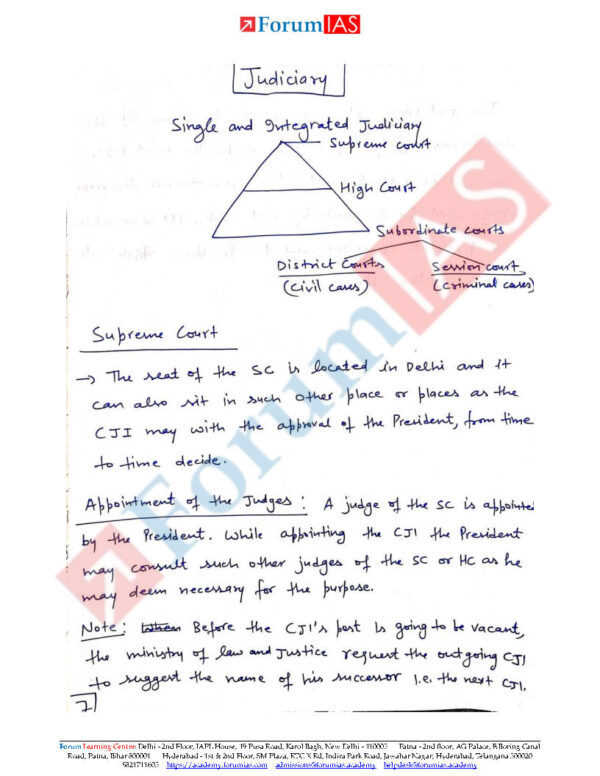 ForumIAS
Judiciary
Single and Integrated Judiciary
Supreme court
High Court
Subordinate courts
District Courts
(Civil cases)
Session court
(Criminal cases)
Supreme Court
→ The seat of the SC is located in Delhi and it
can also sit in such other place or places as the
CJI may with the approval of the President, from time
to time decide.
Appointment of the Judges: A judge of the SC is appointed
by the President. While appointing the CJI the President
may consult such other judges of the SC or HC as he
may deem necessary for the purpose.
Note: Before the CJI's post is going to be vacant,
the ministry of law and Justice request the outgoing CJI
to suggest the name of his successor i.e. the next CJI.
7
ForumIAS
Forum Learning Centre: Delhi - 2nd Floor, IAPL House, 19 Pusa Road, Karol Bagh, New Delhi - 110005 Patna - 2nd floor, AG Palace, E Boring Canal
Road, Patna, Bihar 800001 Hyderabad - 1st & 2nd Floor, SM Plaza, RTC X Rd, Indira Park Road, Jawahar Nagar, Hyderabad, Telangana 500020
9821711605 https://academy.forumias.com admissions@forumias.academy helpdesk@forumias.academy